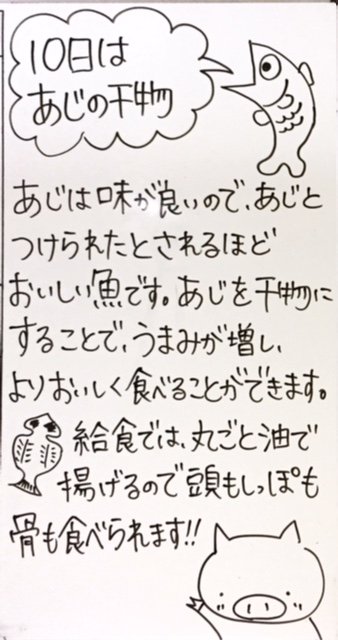 10日は
あじの干物
あじは味が良いので、あじと
つけられたとされるほど
おいしい魚です。あじを干物に
することで、うまみが増し、
よりおいしく食べることができます。
給食では、丸ごと油で
揚げるので頭もしっぽも
骨も食べられます!!